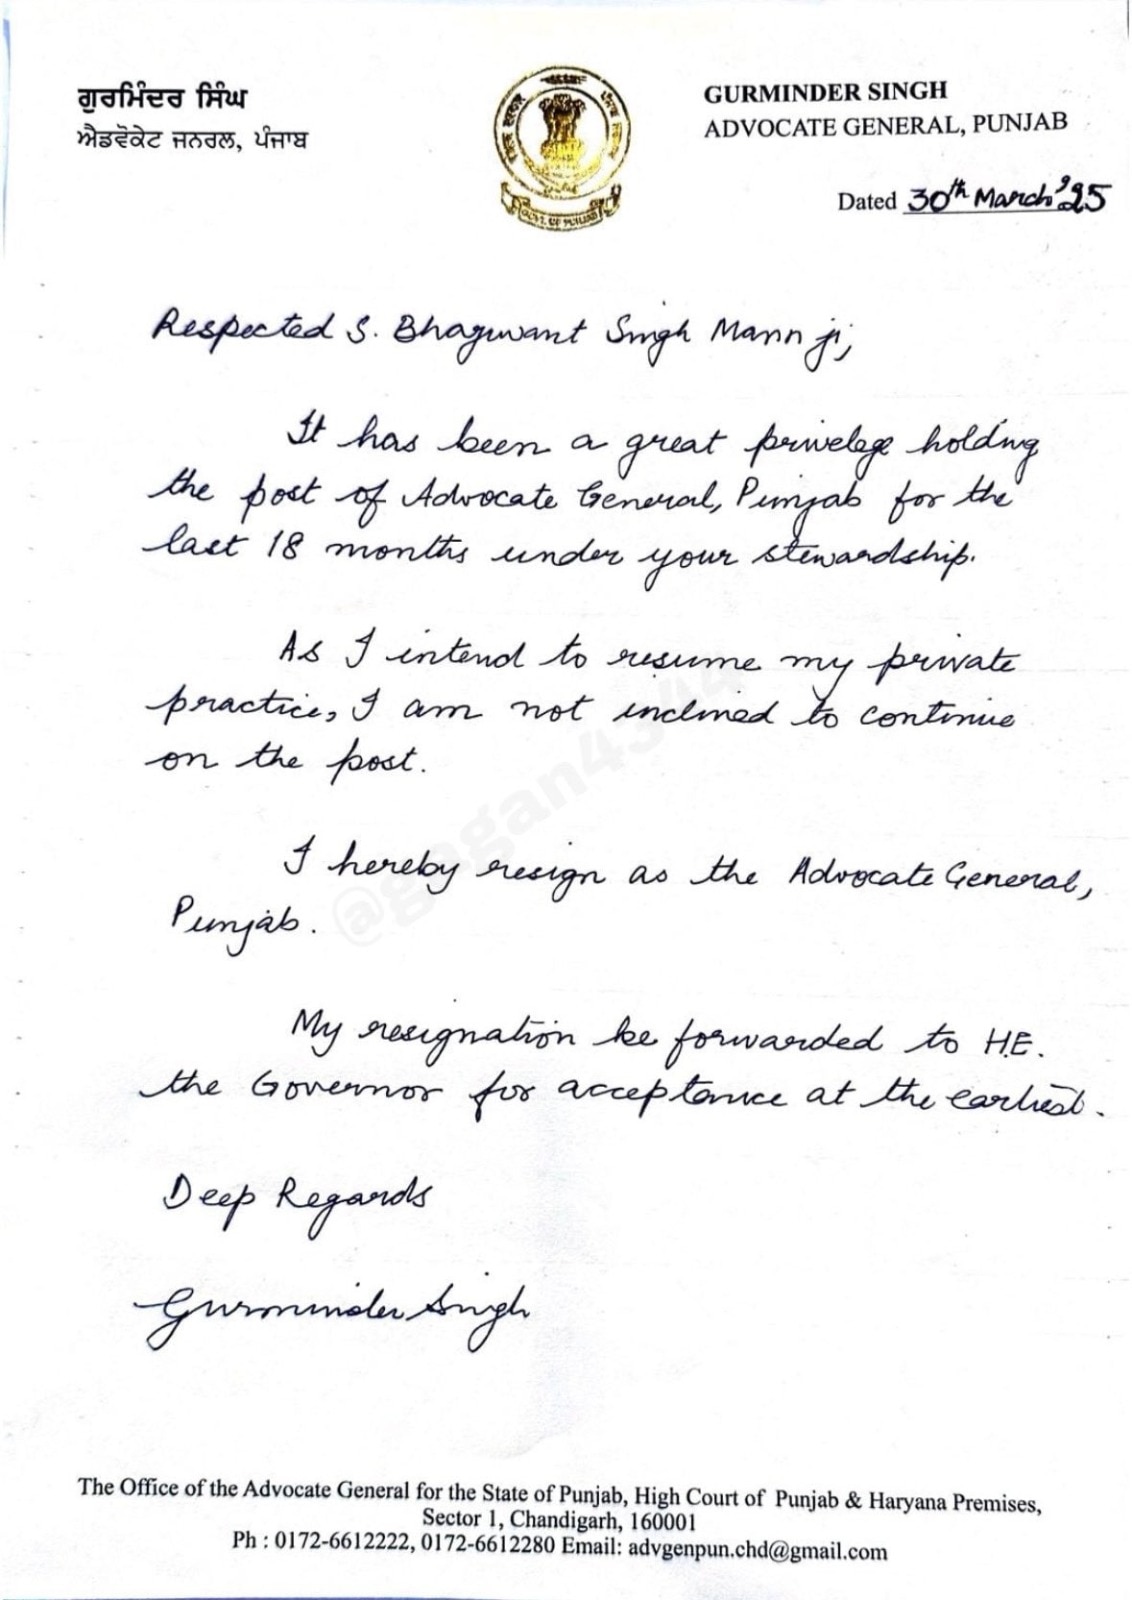 ਗੁਰਮਿੰਦਰ ਸਿੰਘ
ਐਡਵੋਕੇਟ ਜਨਰਲ, ਪੰਜਾਬ
GOVT. OF PUNJAB
GURMINDER SINGH
ADVOCATE GENERAL, PUNJAB
Dated 30th March '25
Respected S. Bhagwant Singh Mann ji,
It has been a great privelege holding
the post of Advocate General, Punjab for the
last 18 months under your stewardship.
As I intend to resume my private
practice, I am not inclined to continue
on the post.
I hereby resign as the Advocate General,
Punjab.
My resignation be forwarded to H.E.
the Governor for acceptance at the earliest.
Deep Regards
Gurminder Singh
@gagan4344
The Office of the Advocate General for the State of Punjab, High Court of Punjab & Haryana Premises,
Sector 1, Chandigarh, 160001
Ph : 0172-6612222, 0172-6612280 Email: advgenpun.chd@gmail.com